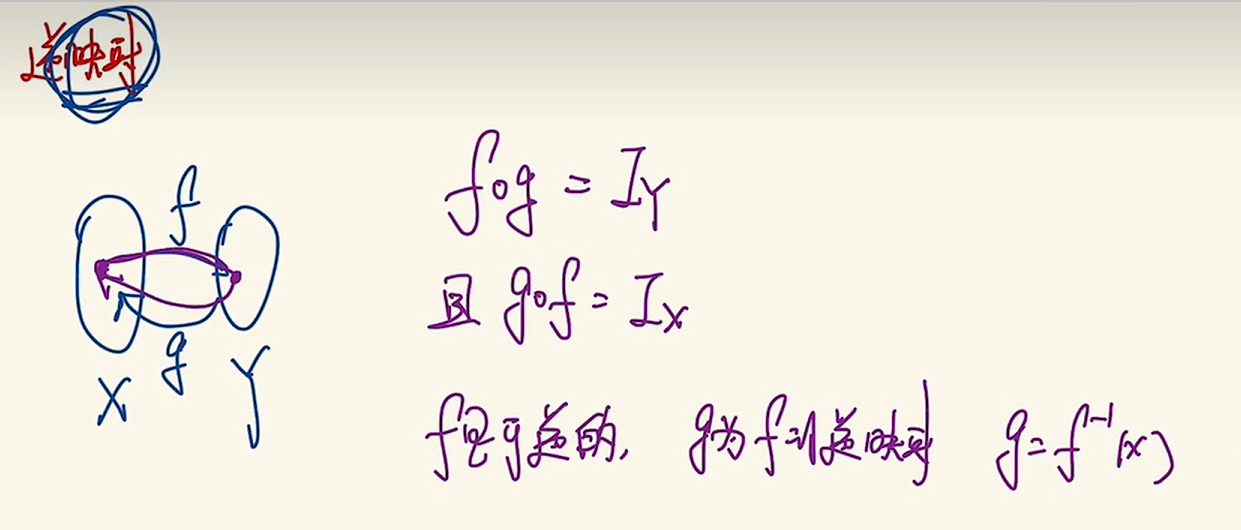 逆映射
f
g
X Y
f∘g = I_Y
且 g∘f = I_X
f是可逆的, g为f的逆映射 g=f⁻¹(x)